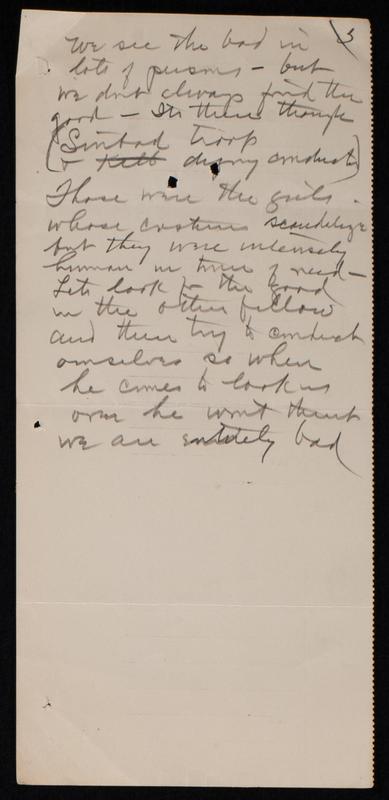 3
We see the bad in
lots of persons – but
we dont always find the
good – Its there though
(Sinbad troop
& dining conductor)
Those were the girls
whose costums scandelize
but they were intensely
human in time of need –
Lets look for the good
in the other fellow
and then try to conduct
ourselves so when
he comes to look us
over he wont think
we are entitely bad